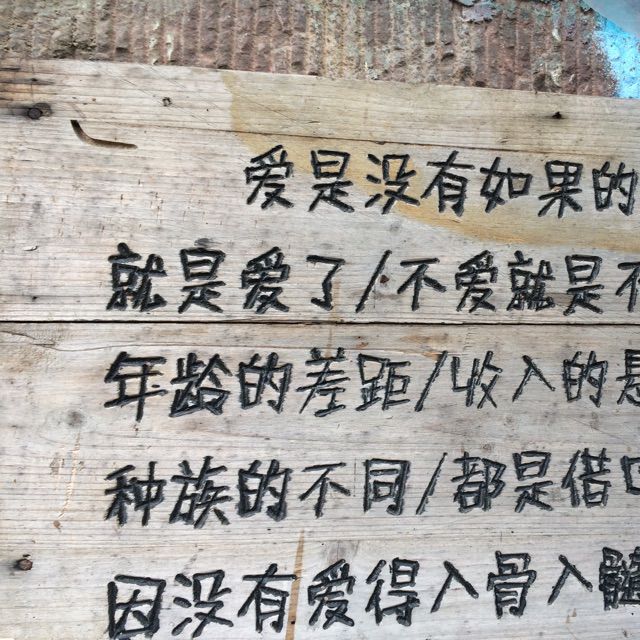 爱是没有如果的
就是爱了/不爱就是
年龄的差距/收入的
种族的不同/都是借
因没有爱得入骨入髓